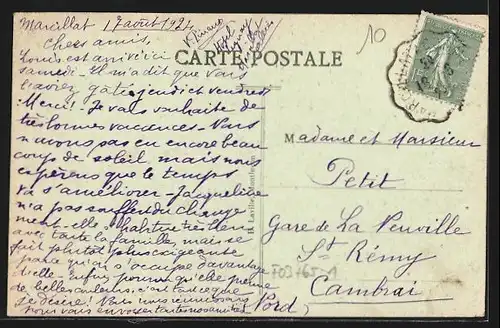 Marcillat 17 août 1924
Chers amis,
Louis est arrivé ici
samedi. Il m'a dit que vous
l'avez gâté jeudi et vendredi
Merci! Je vous souhaite de
très bonnes vacances. Nous
n'avons pas eu encore beau
coup de soleil mais nous
espérons que le temps
va s'améliorer. Jacqueline
n'a pas souffert du change
ment. elle s'habitue très bien
avec toute la famille, mais se
fait plutôt plus exigeante
parce qu'on s'occupe davantage
d'elle. Enfin pourvu qu'elle prenne
de belles couleurs, c'est tout ce que
je désire! Nous vous
nous vous envoyons
CARTE POSTALE
10
Madame et Monsieur
Petit
Gare de La Neuville
St Rémy
Cambrai
(Nord)
T03165-1